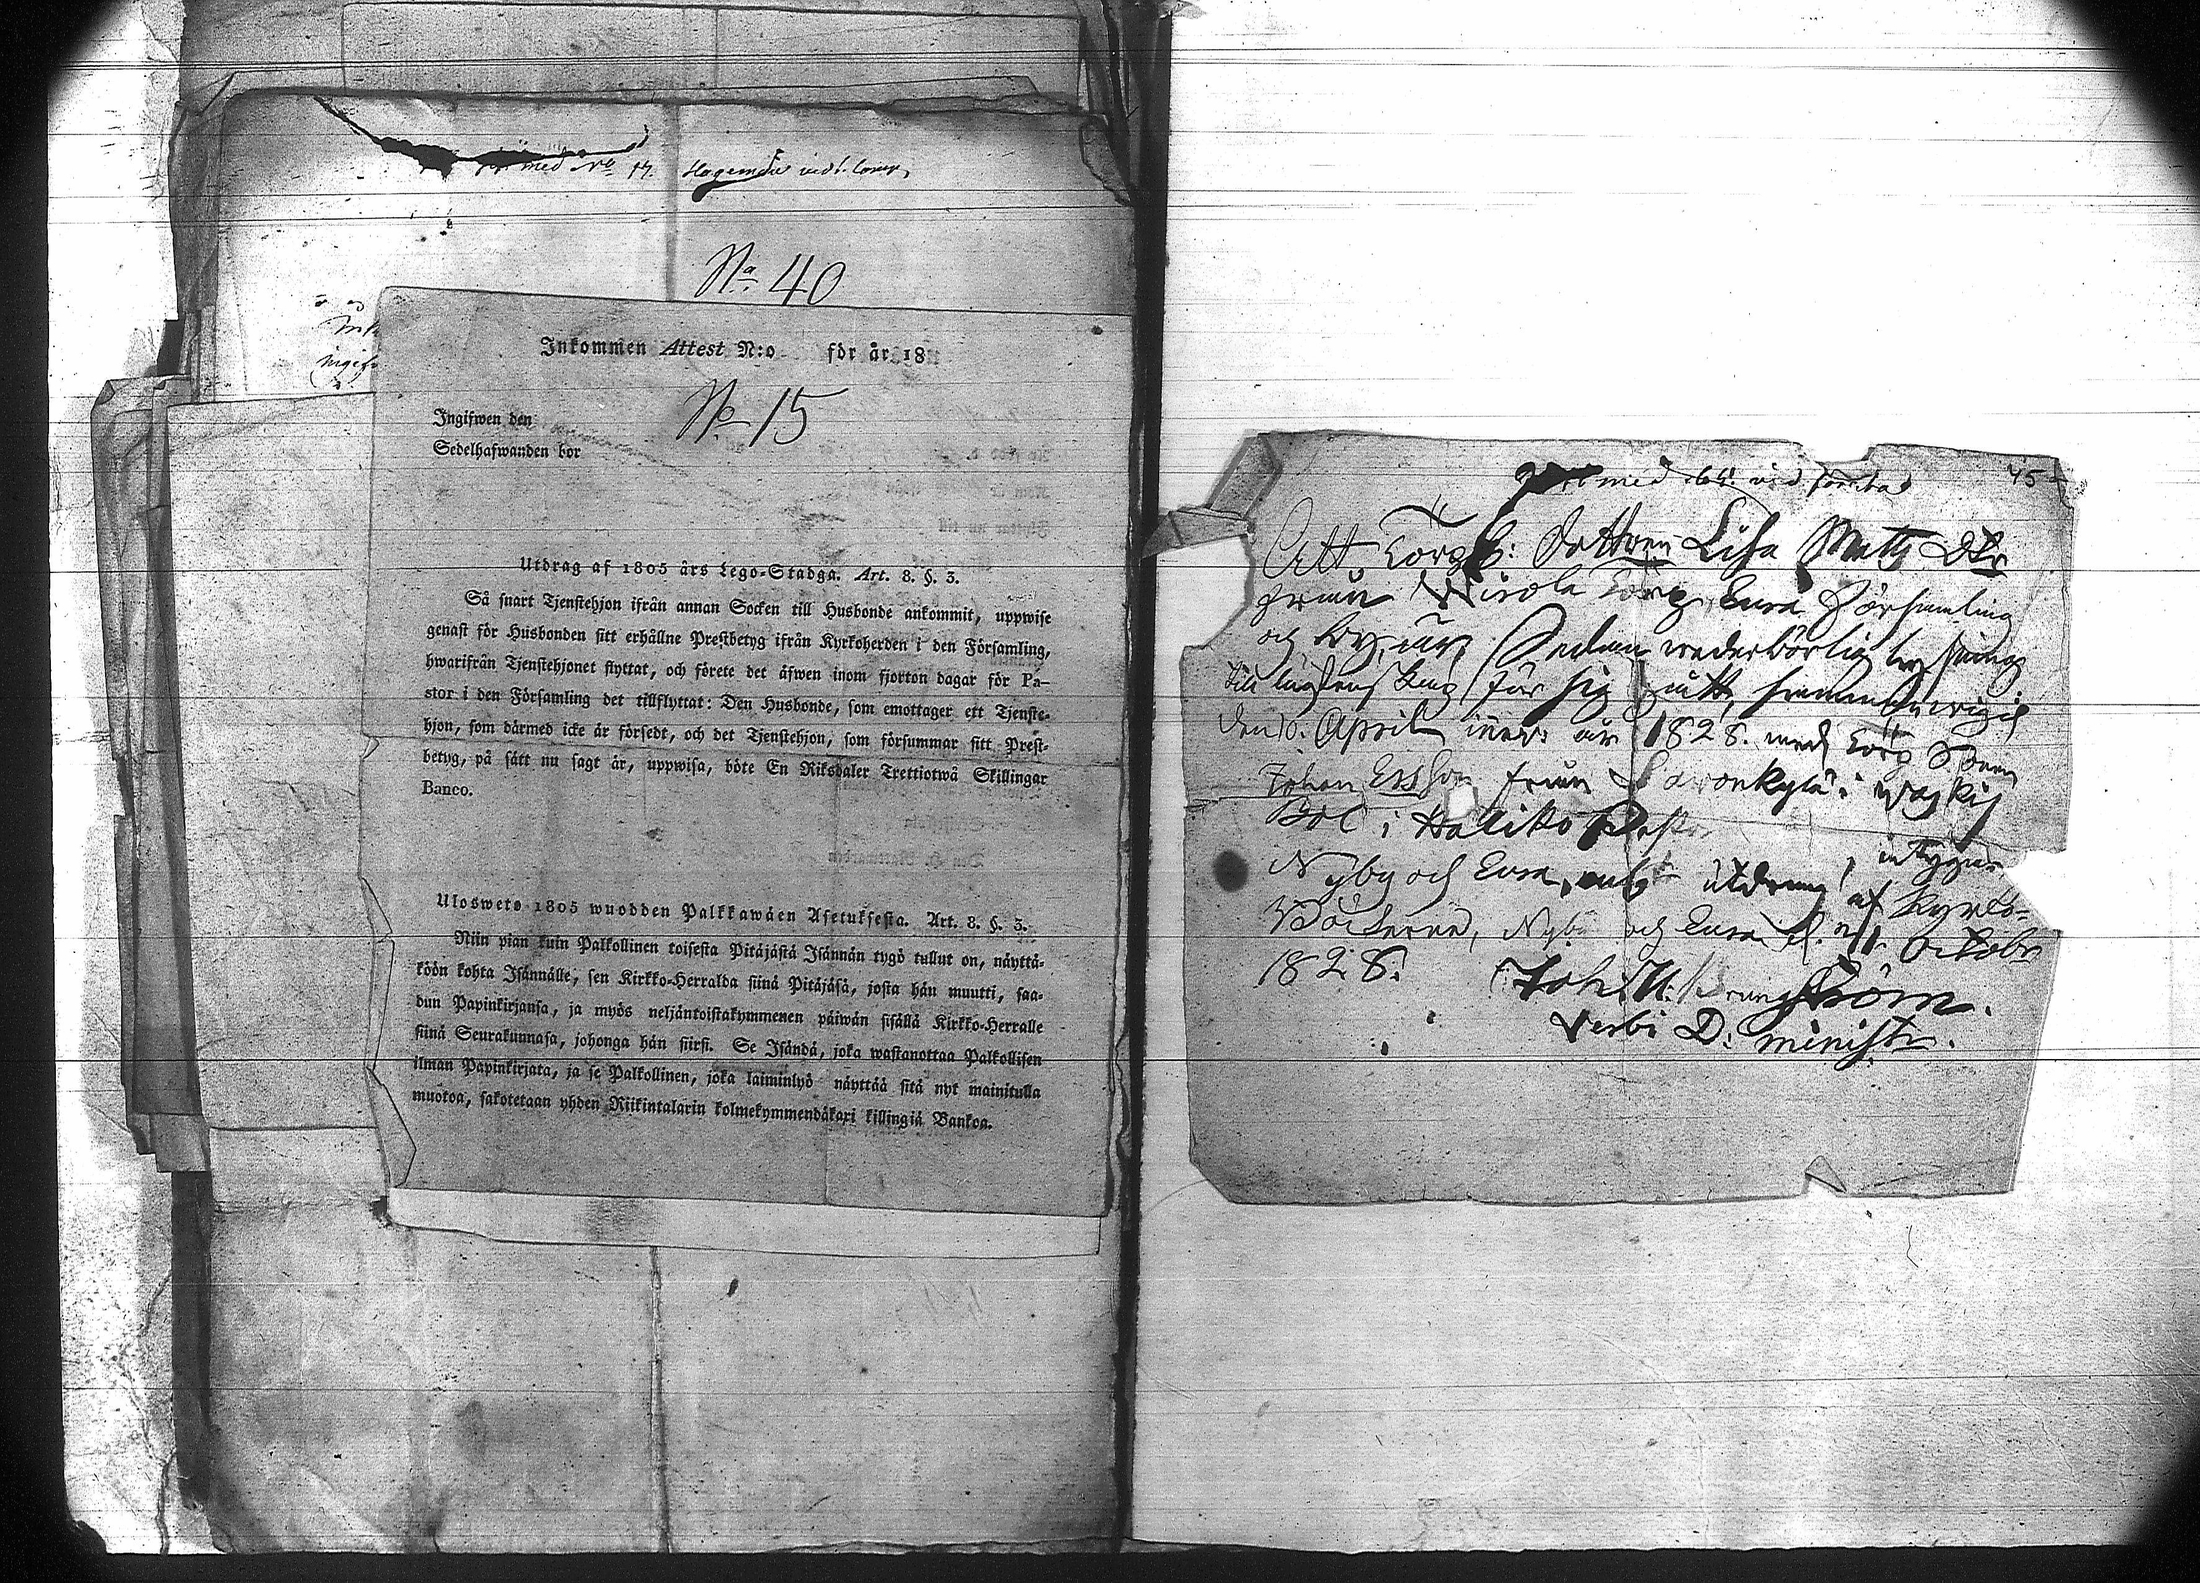 med No 17.
No 40
Inkommen Attest N:o för år 18
No 15
Ingifwen den
Sedelhafwanden bor
Utdrag af 1805 års Lego-Stadga. Art. 8. §. 3.
Så snart Tjenstehjon ifrån annan Socken till Husbonde ankommit, uppwise
genast för Husbonden sitt erhållne Prestbetyg ifrån Kyrkoherden i den Församling,
hwarifrån Tjenstehjonet flyttat, och förete det äfwen inom fjorton dagar för Pa-
stor i den Församling det tillflyttat: Den Husbonde, som emottager ett Tjenste-
hjon, som därmed icke är försedt, och det Tjenstehjon, som försummar sitt Prest-
betyg, på sätt nu sagt är, uppwisa, böte En Riksdaler Trettiotwå Skillingar
Banco.
Ulosweto 1805 wuodden Palkkawäen Asetuksesta. Art. 8. §. 3.
Niin pian kuin Palkollinen toisesta Pitäjästä Isännän tygö tullut on, näyttä-
köön kohta Isännälle, sen Kirkko-Herralda siinä Pitäjäsä, josta hän muutti, saa-
dun Papinkirjansa, ja myös neljäntoistakymmenen päiwän sisällä Kirkko-Herralle
siinä Seurakunnasa, johonga hän siirsi. Se Isändä, joka wastanottaa Palkollisen
ilman Papinkirjata, ja se Palkollinen, joka laiminlyö näyttää sitä nyt mainitulla
muotoa, sakotetaan yhden Riikintalarin kolmekymmendäkaxi killingiä Bankoa.
med wid 45
Att Torp: Dottren Lisa Matts Dtr
från Nirola Torp Eura Församling
och by, är, Sedan wederbörlig lysning
till ägtenskap för sig gått, sammanwigd
den April år 1828. med Torp
Johan Ersson från Sawonkylä i
Böl i Haliko
Nyby och Eura, utdrag af Kyrko-
Böckerne, Nyby och Eura d. Octobr
1828. Joh. ström.
Verbi D: minist: